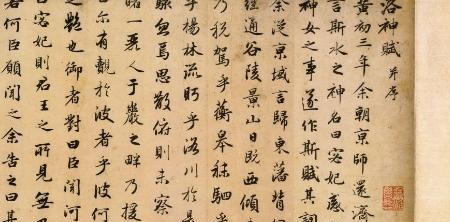 洛神賦 并序
黃初三年余朝京師還濟
言斯水之神名曰宓妃感
神女之事遂作斯賦其詞
余從京域言歸東藩背
經通谷陵景山日既西傾
乃稅駕乎蘅皋秣駟乎
乎楊林流眄乎洛川於是
駭忽焉思散俯則未察
睹一麗人于巖之畔乃援
曰尔有覿於彼者乎彼何
之艷也御者對曰臣聞河
曰宓妃則君王之所見無
若何臣願聞之余告之曰其